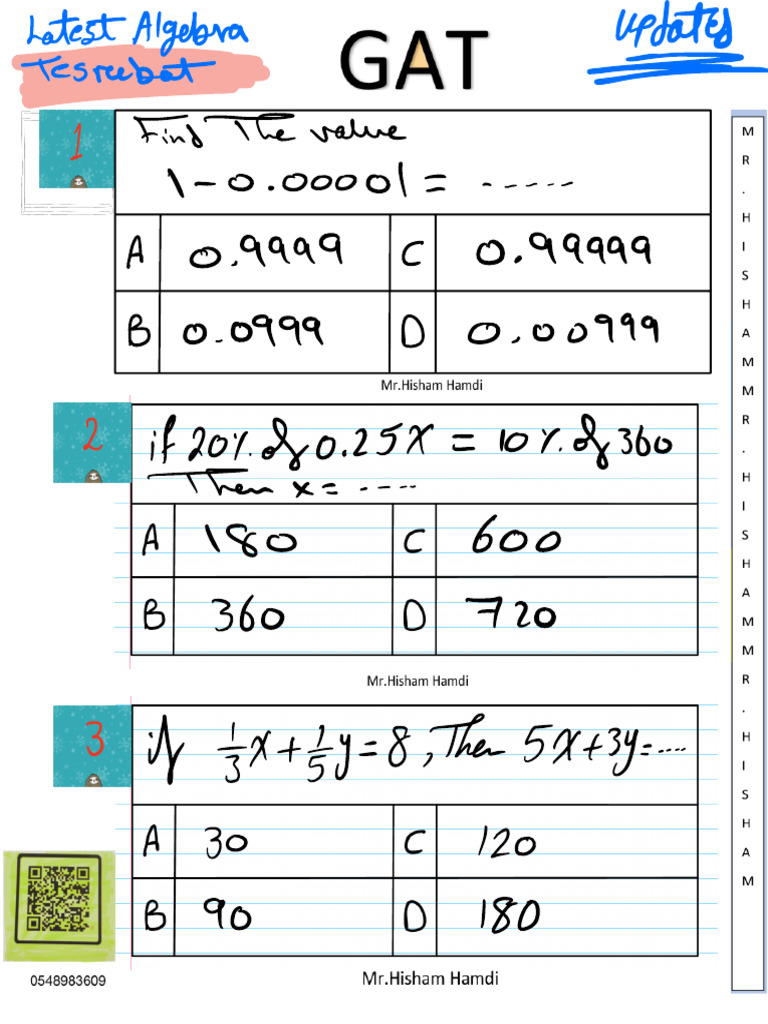 Latest Algebra
Tesreebat
GAT
updates
1
Find The value
1-0.00001 = ......
A 0.9999 C 0.99999
B 0.0999 D 0.00999
Mr.Hisham Hamdi
2
if 20% of 0.25X = 10% of 360
Then x = ....
A 180 C 600
B 360 D 720
Mr.Hisham Hamdi
3
if 1/3 x + 1/5 y = 8, Then 5X+3y=....
A 30 C 120
B 90 D 180
0548983609
Mr.Hisham Hamdi
MR.HISHAMMR.HISHAMMR.HISHAM